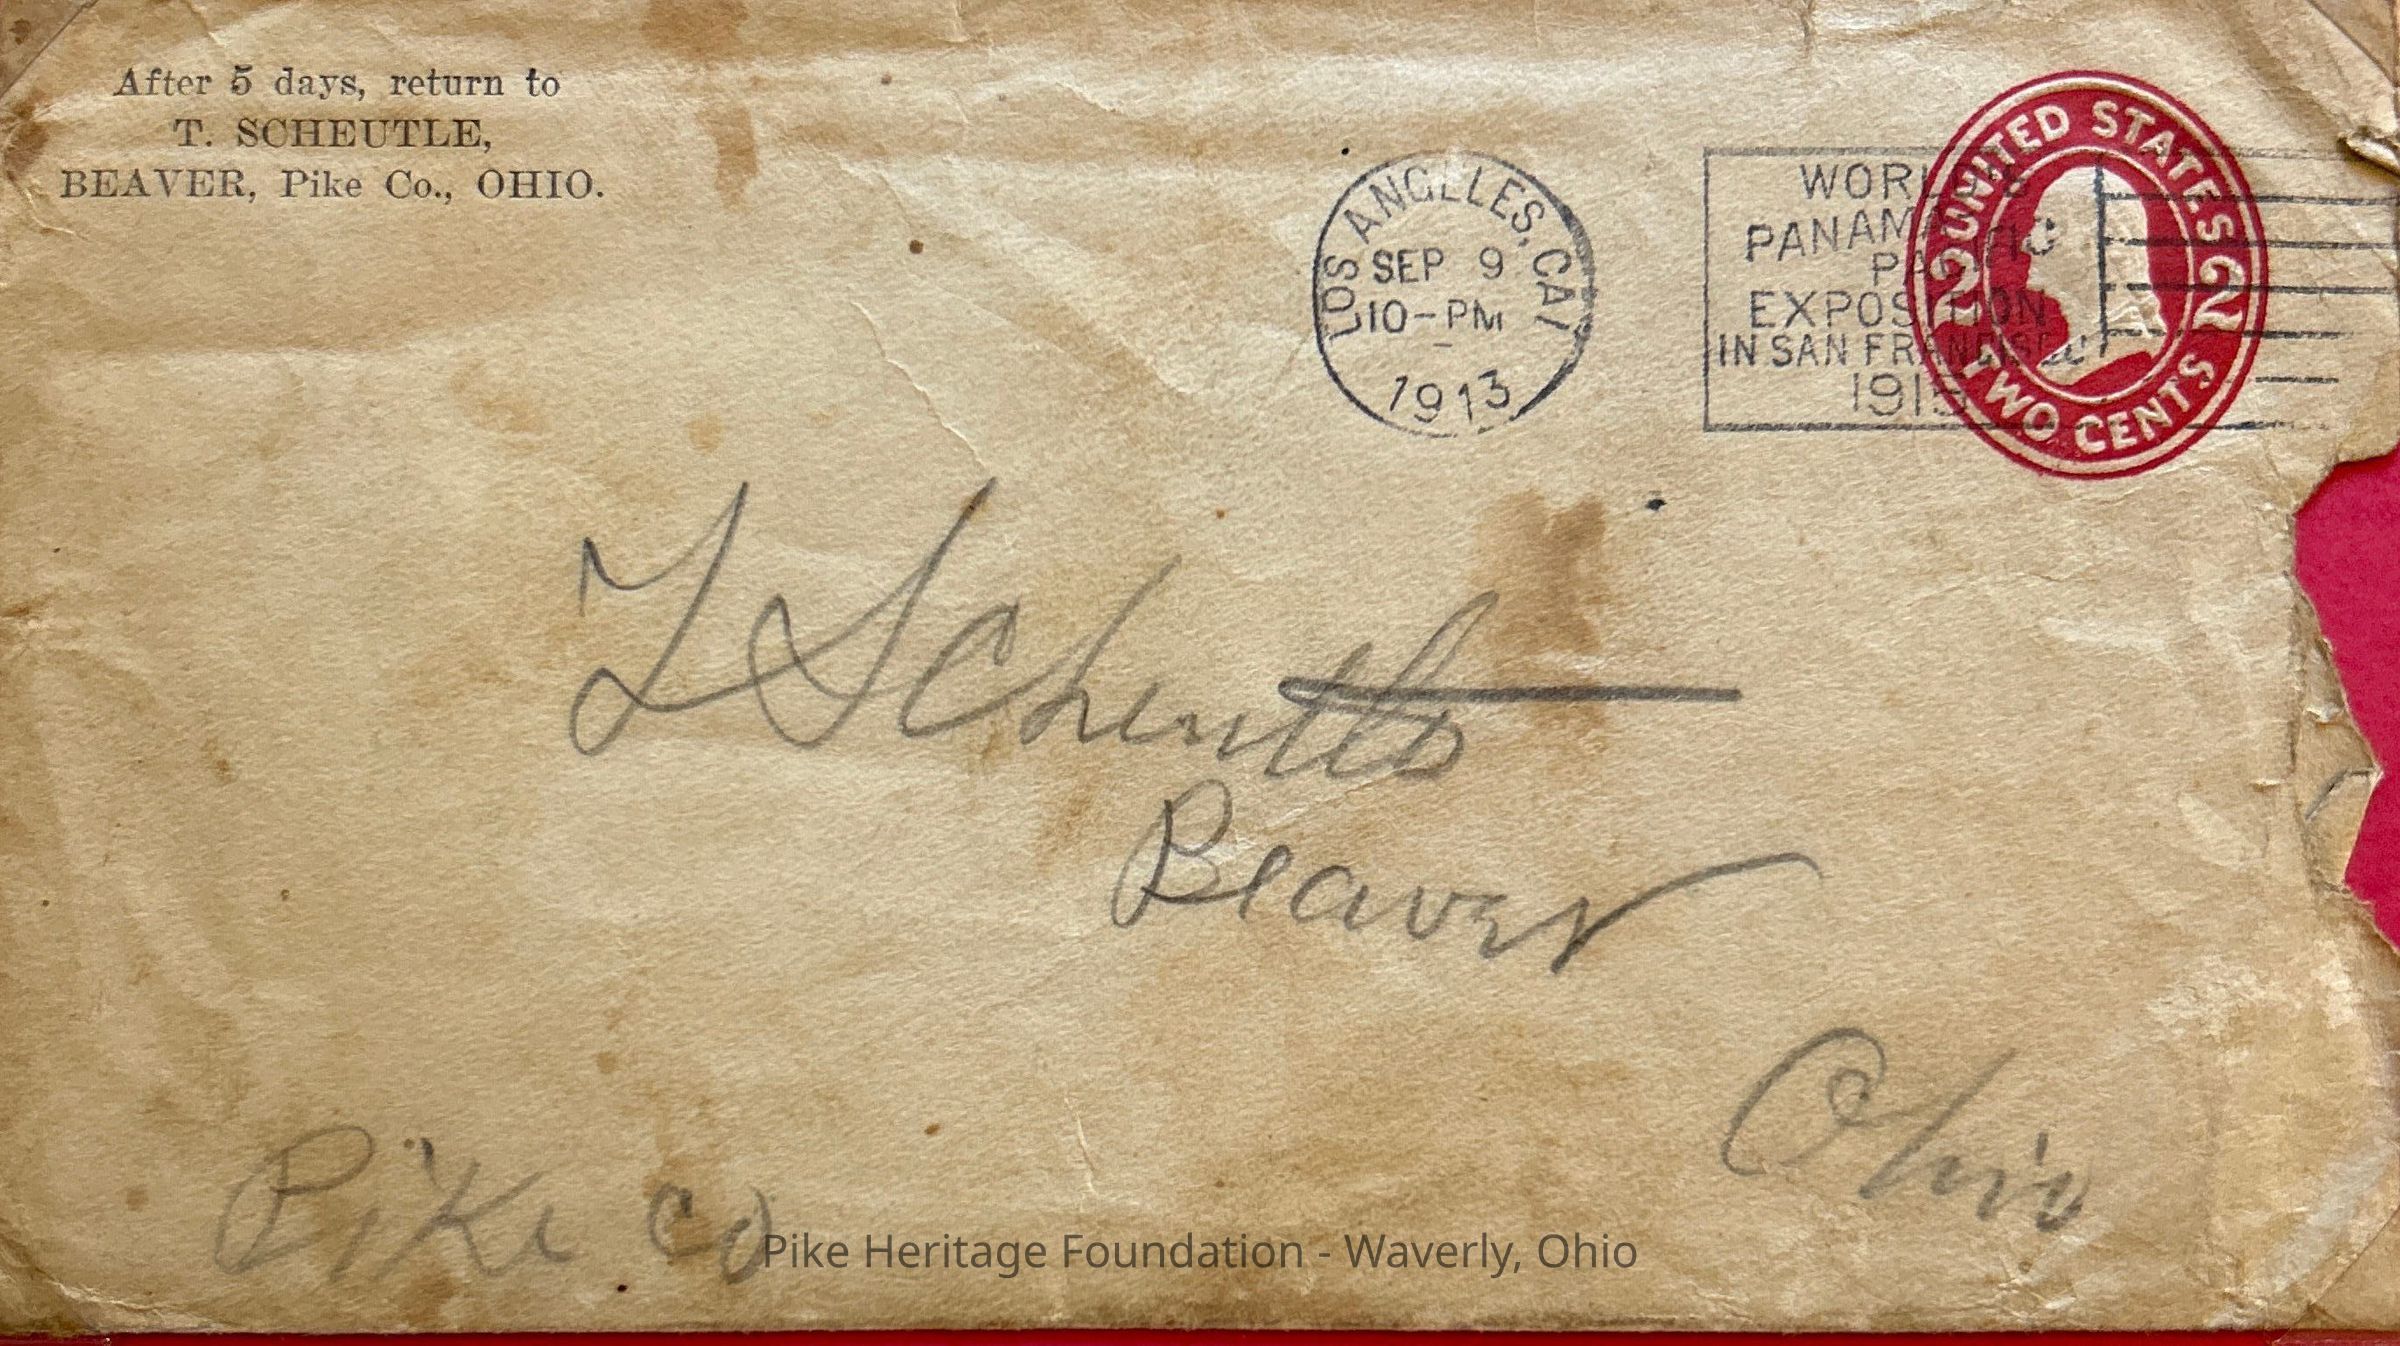 After 5 days, return to
T. SCHEUTLE,
BEAVER, Pike Co., OHIO.
LOS ANGELES, CAL
SEP 9
10-PM
1913
WORLD'S
PANAMA
PACIFIC
EXPOSITION
IN SAN FRANCISCO
1915
UNITED STATES
2 2
TWO CENTS
T Scheutle
Beaver
Ohio
Pike Co
Pike Heritage Foundation - Waverly, Ohio